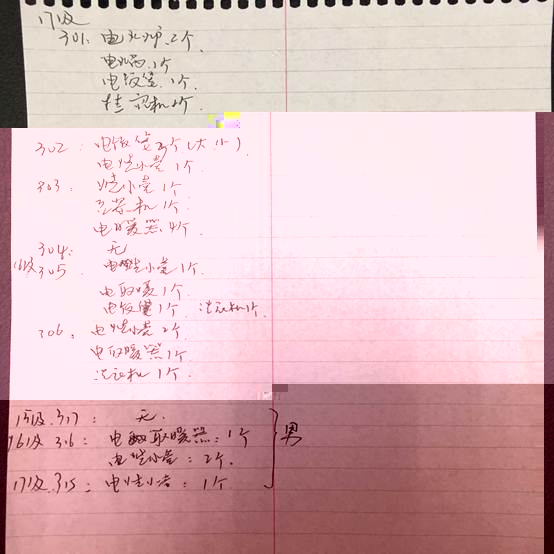 17级
301: 电火炉.2个.
电脑.1个
电饭煲.1个.
挂烫机1个.
302: 电饭煲2个(大.小)
电烧小壶1个.
303: 烧小壶1个
1个.
电暖器4个.
304: 无
16级305 电烧小壶1个.
电取暖1个.
电饭煲1个. 洗衣机1个.
306: 电烧小壶2个.
电取暖器1个
洗衣机1个.
15级.317: 无.
16级316: 电取暖器:1个
电烧小壶:2个.
男
17级.315: 电烧小壶:1个